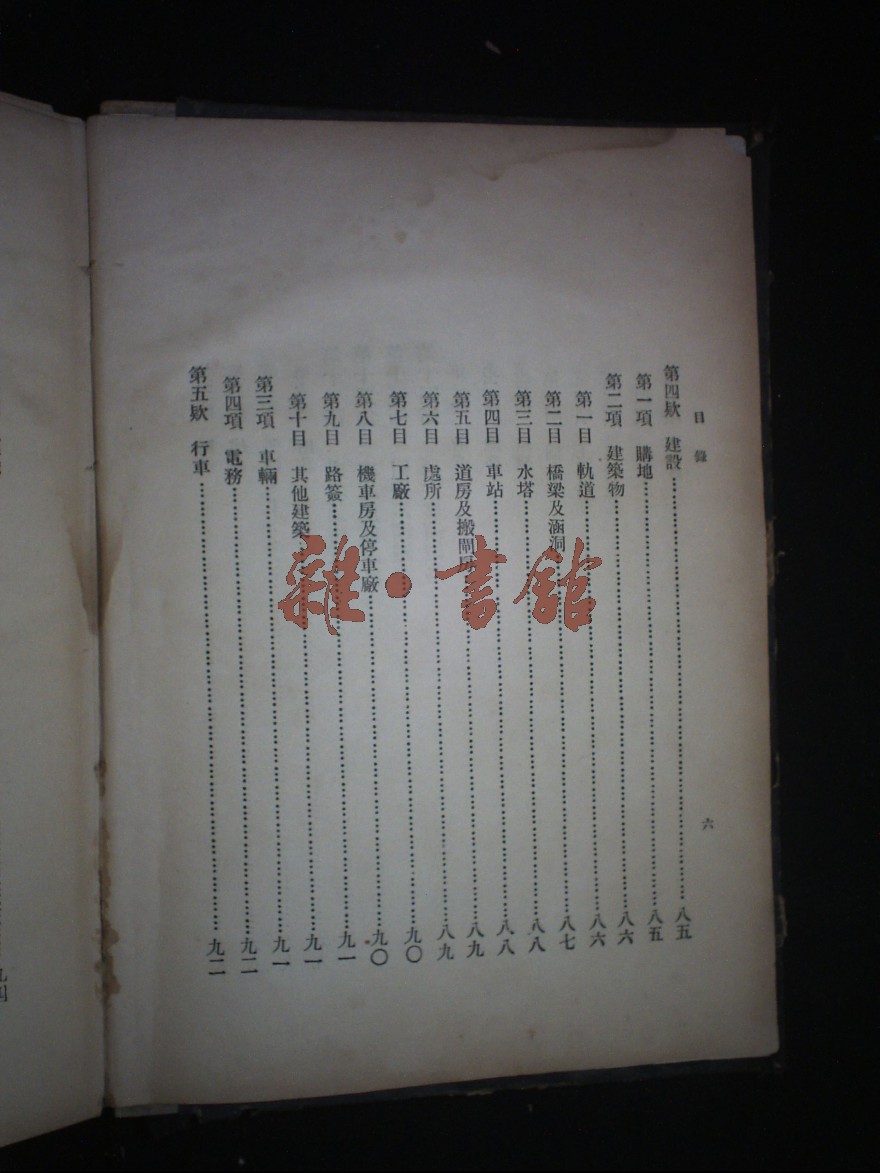 目錄
六
第四欵 建設……八五
第一項 購地……八五
第二項 建築物……八六
第一目 軌道……八六
第二目 橋梁及涵洞……八七
第三目 水塔……八八
第四目 車站……八八
第五目 道房及搬閘……八九
第六目 處所……八九
第七目 工廠……九〇
第八目 機車房及停車廠……九〇
第九目 路簽……九一
第十目 其他建築……九一
第三項 車輛……九一
第四項 電務……九二
第五欵 行車……九二
雜·書館